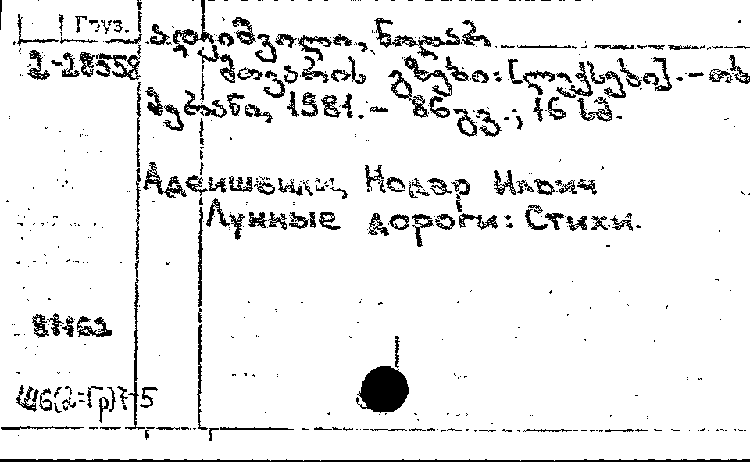 Груз.
ადეიშვილი, ნოდარ
2-28558 მთვარის გზები: [ლექსები]. – თბ.
მერანი, 1981. – 86 გვ.; 16 სმ.
Адеишвили, Нодар Ильич
Лунные дороги: Стихи.
81162
Ш6(2=Гр)7-5